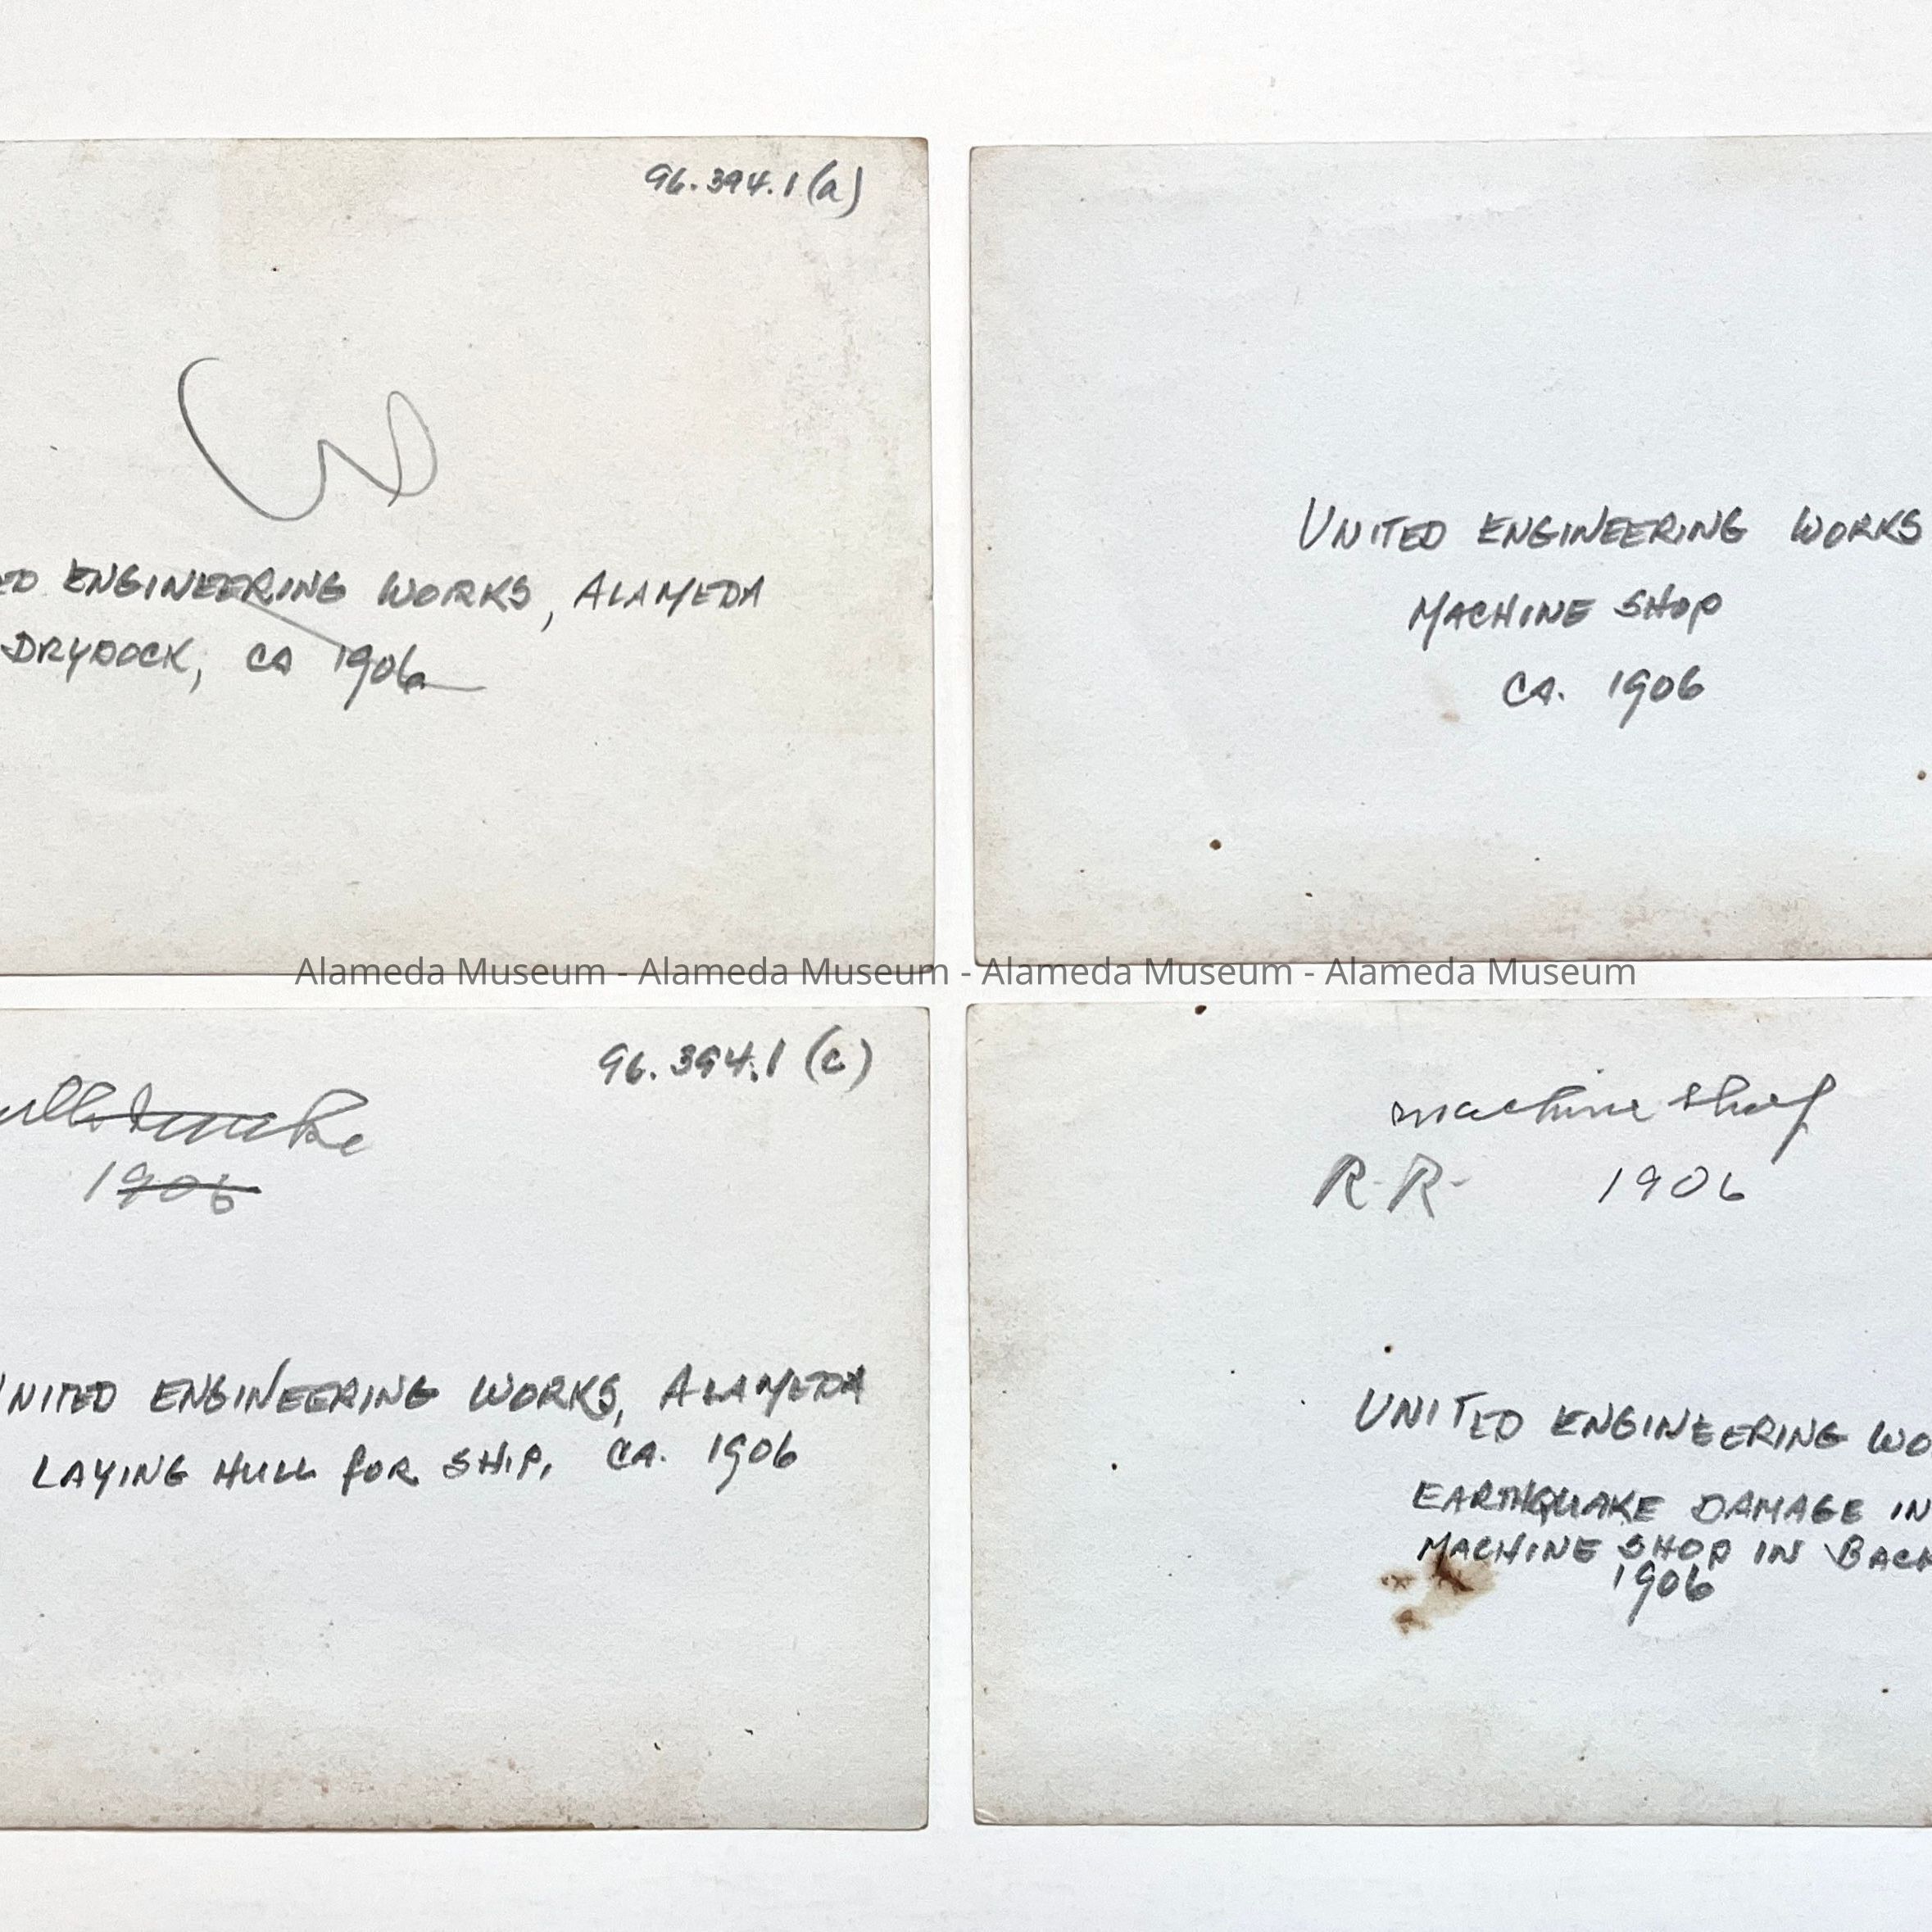 96.394.1(a)
ED ENGINEERING WORKS, ALAMEDA
DRYDOCK, CA 1906
UNITED ENGINEERING WORKS
MACHINE SHOP
CA. 1906
Alameda Museum - Alameda Museum - Alameda Museum - Alameda Museum
96.394.1 (c)
1906
UNITED ENGINEERING WORKS, ALAMEDA
LAYING HULL FOR SHIP, CA. 1906
machine shop
R-R- 1906
UNITED ENGINEERING WO
EARTHQUAKE DAMAGE IN
MACHINE SHOP IN BACK
1906